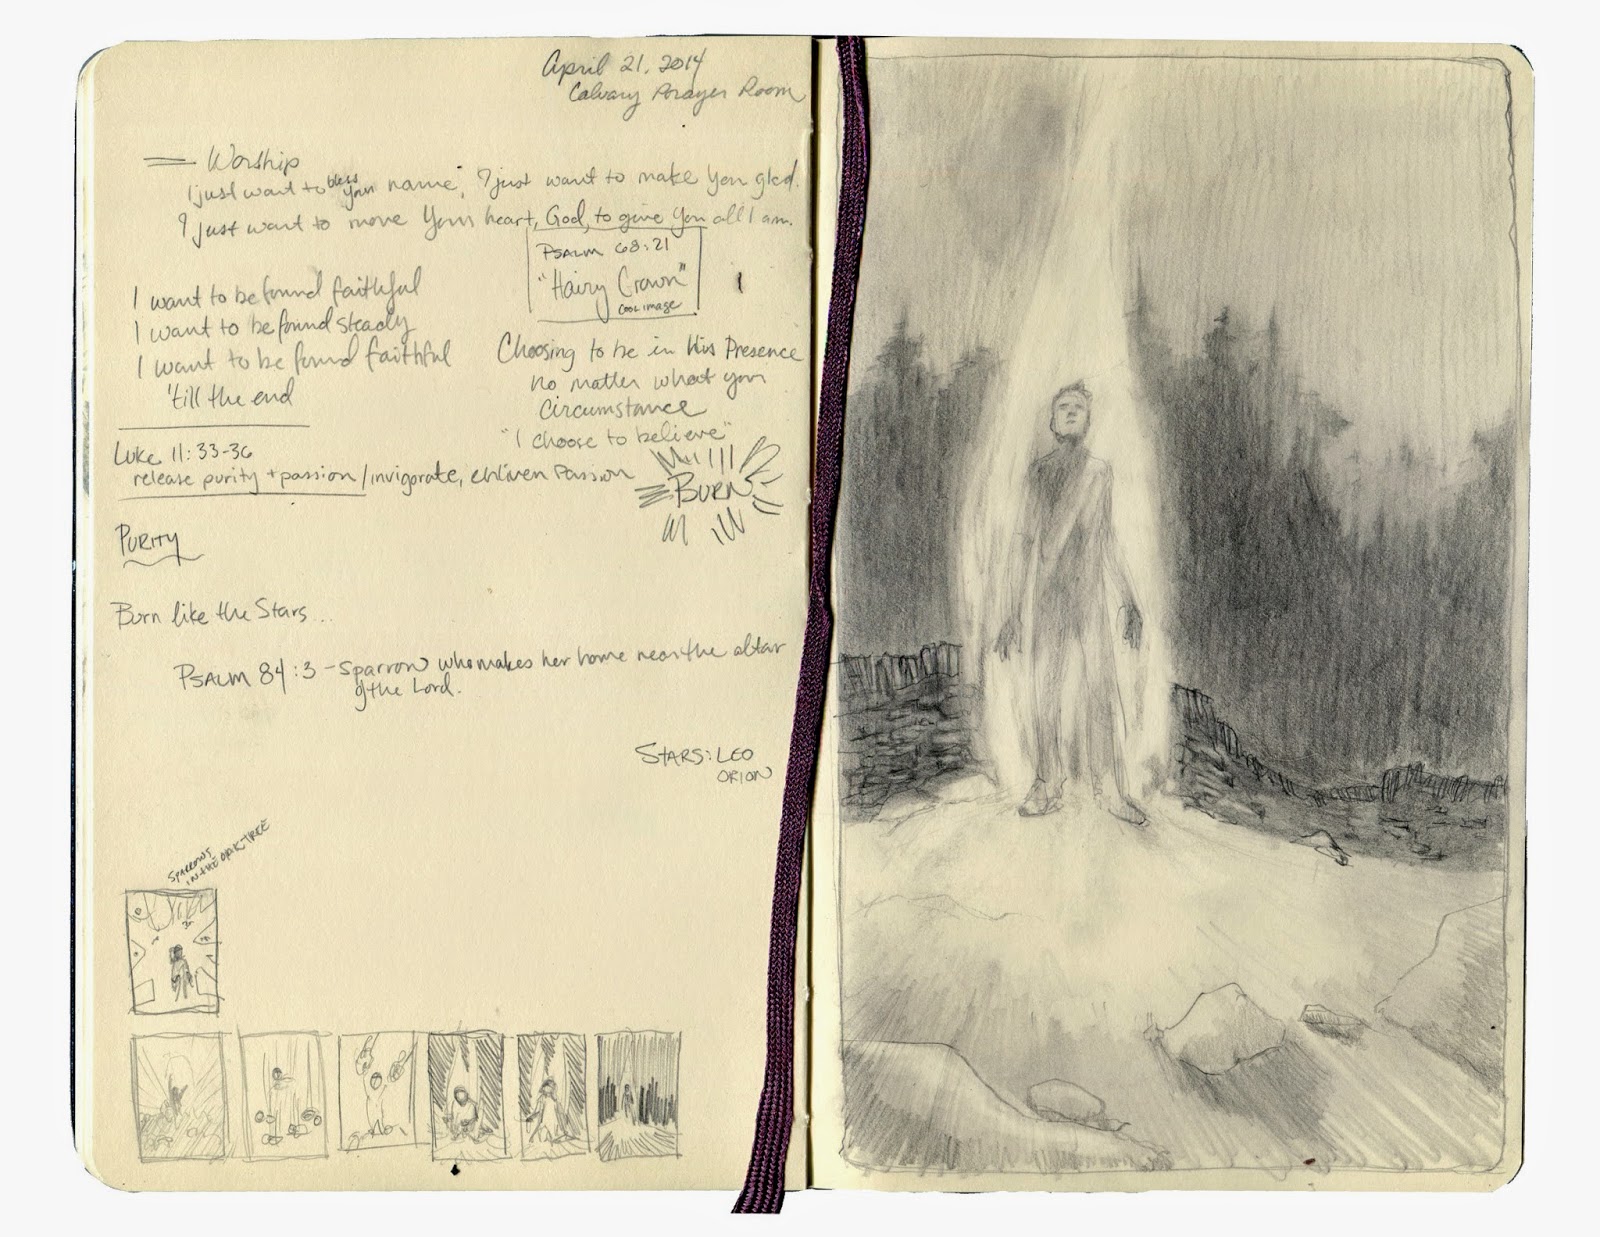 April 21, 2014
Calvary Prayer Room
Worship
I just want to bless Your name, I just want to make You glad.
I just want to move Your heart, God, to give You all I am.
PSALM 68:21
"Hairy Crown"
COOL IMAGE
I want to be found faithful
I want to be found steady
I want to be found faithful
'till the end
Choosing to be in His Presence
no matter what your
circumstance
"I choose to believe"
Luke 11:33-36
release purity + passion / invigorate, enliven Passion
BURN
PURITY
Burn like the Stars...
PSALM 84:3 - Sparrow who makes her home near the altar
of the Lord.
STARS: LEO
ORION
SPARROWS
IN THE OAK TREE